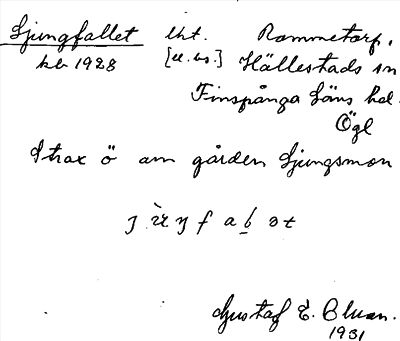 Ljungfallet lht. Rommetorp,
kb 1928 [u. bs.] Hällestads sn
Finspånga läns hd.
Ögl
Strax ö om gården Ljungsmon
Gustaf E. Bluan.
1931